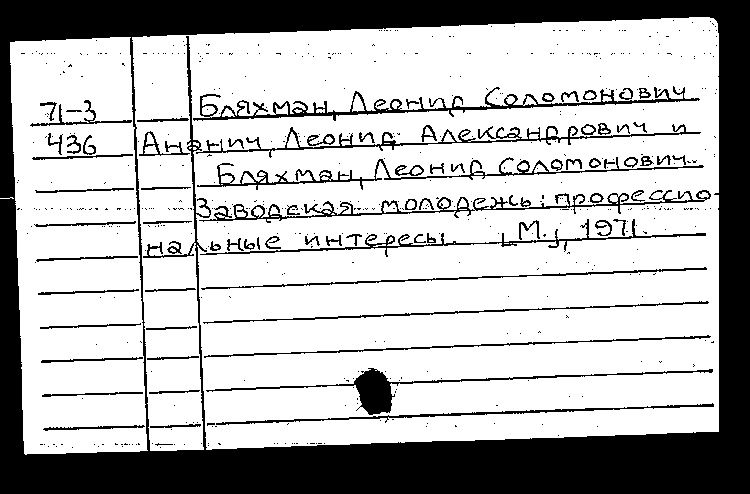 71-3 Бляхман, Леонид Соломонович
436 Ананич, Леонид Александрович и
Бляхман, Леонид Соломонович.
Заводская молодежь: профессио-
нальные интересы. [М.], 1971.